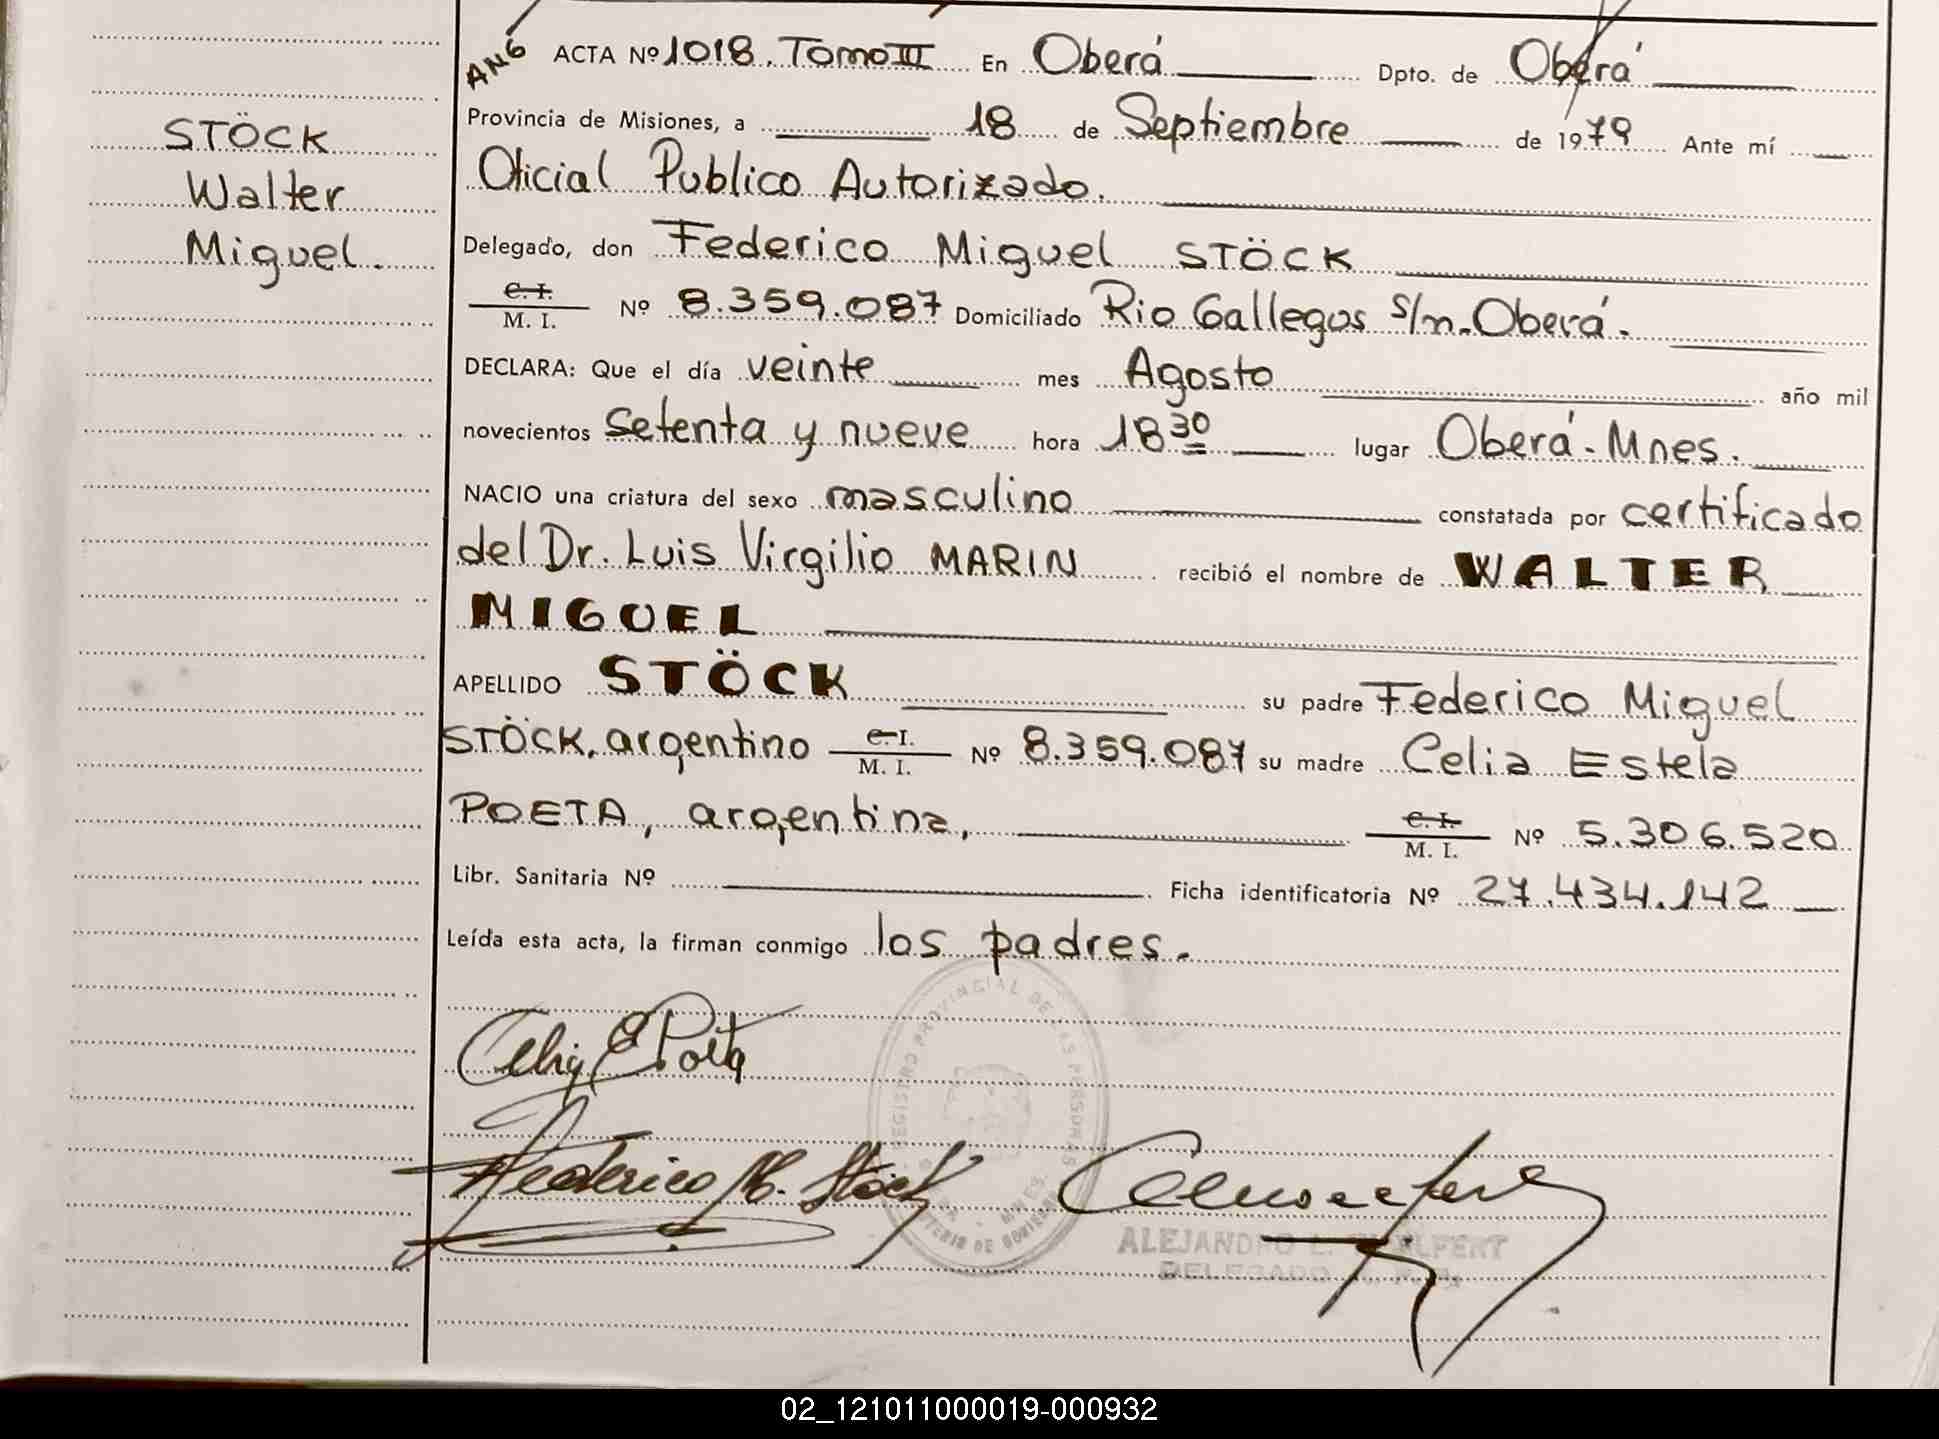 ANG
ACTA Nº 1018. Tomo III En Oberá Dpto. de Oberá
Provincia de Misiones, a 18 de Septiembre de 1979 Ante mí
STÖCK
Walter
Miguel.
Oficial Publico Autorizado.
Delegado, don Federico Miguel STÖCK
C. I.
M. I. Nº 8.359.087 Domiciliado Rio Gallegos s/n.-Oberá.-
DECLARA: Que el día veinte mes Agosto año mil
novecientos setenta y nueve hora 18 30 lugar Oberá - Mnes.
NACIO una criatura del sexo masculino constatada por certificado
del Dr. Luis Virgilio MARIN recibió el nombre de WALTER
MIGUEL
APELLIDO STÖCK su padre Federico Miguel
STÖCK, argentino C. I. M. I. Nº 8.359.087 su madre Celia Estela
POETA, argentina, C. I. M. I. Nº 5.306.520
Libr. Sanitaria Nº Ficha identificatoria Nº 27.434.142
Leída esta acta, la firman conmigo los padres.-
REGISTRO PROVINCIAL DE LAS PERSONAS
MNES.
DE GOBIERNO
Celia E Poeta
Federico M. Stöck
ALEJANDRO L.
DELEGADO
02_121011000019-000932